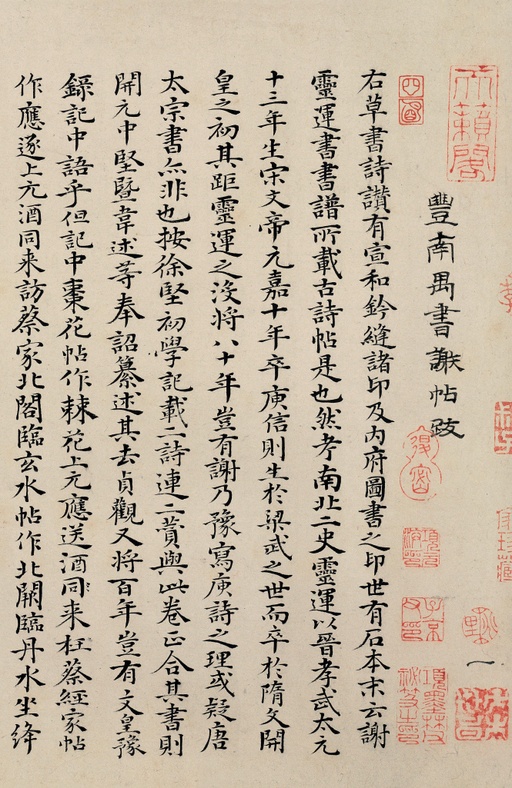 豐南禺書謝帖跋
右草書詩讚有宣和鈐縫諸印及內府圖書之印世有石本末云謝
靈運書書譜所載古詩帖是也然考南北二史靈運以晉孝武太元
十三年生宋文帝元嘉十年卒庾信則生於梁武之世而卒於隋文開
皇之初其距靈運之沒將八十年豈有謝乃豫寫庾詩之理或疑唐
太宗書亦非也按徐堅初學記載二詩連二賛與此卷正合其書則
開元中堅暨韋述等奉詔纂述其去貞觀又將百年豈有文皇豫
錄記中語乎但記中棗花帖作棘花上元應送酒同来枉蔡經家帖
作應逐上元酒同来訪蔡家北閣臨玄水帖作北闕臨丹水坐絳
天籟閣
項墨林父秘笈之印
子京父印